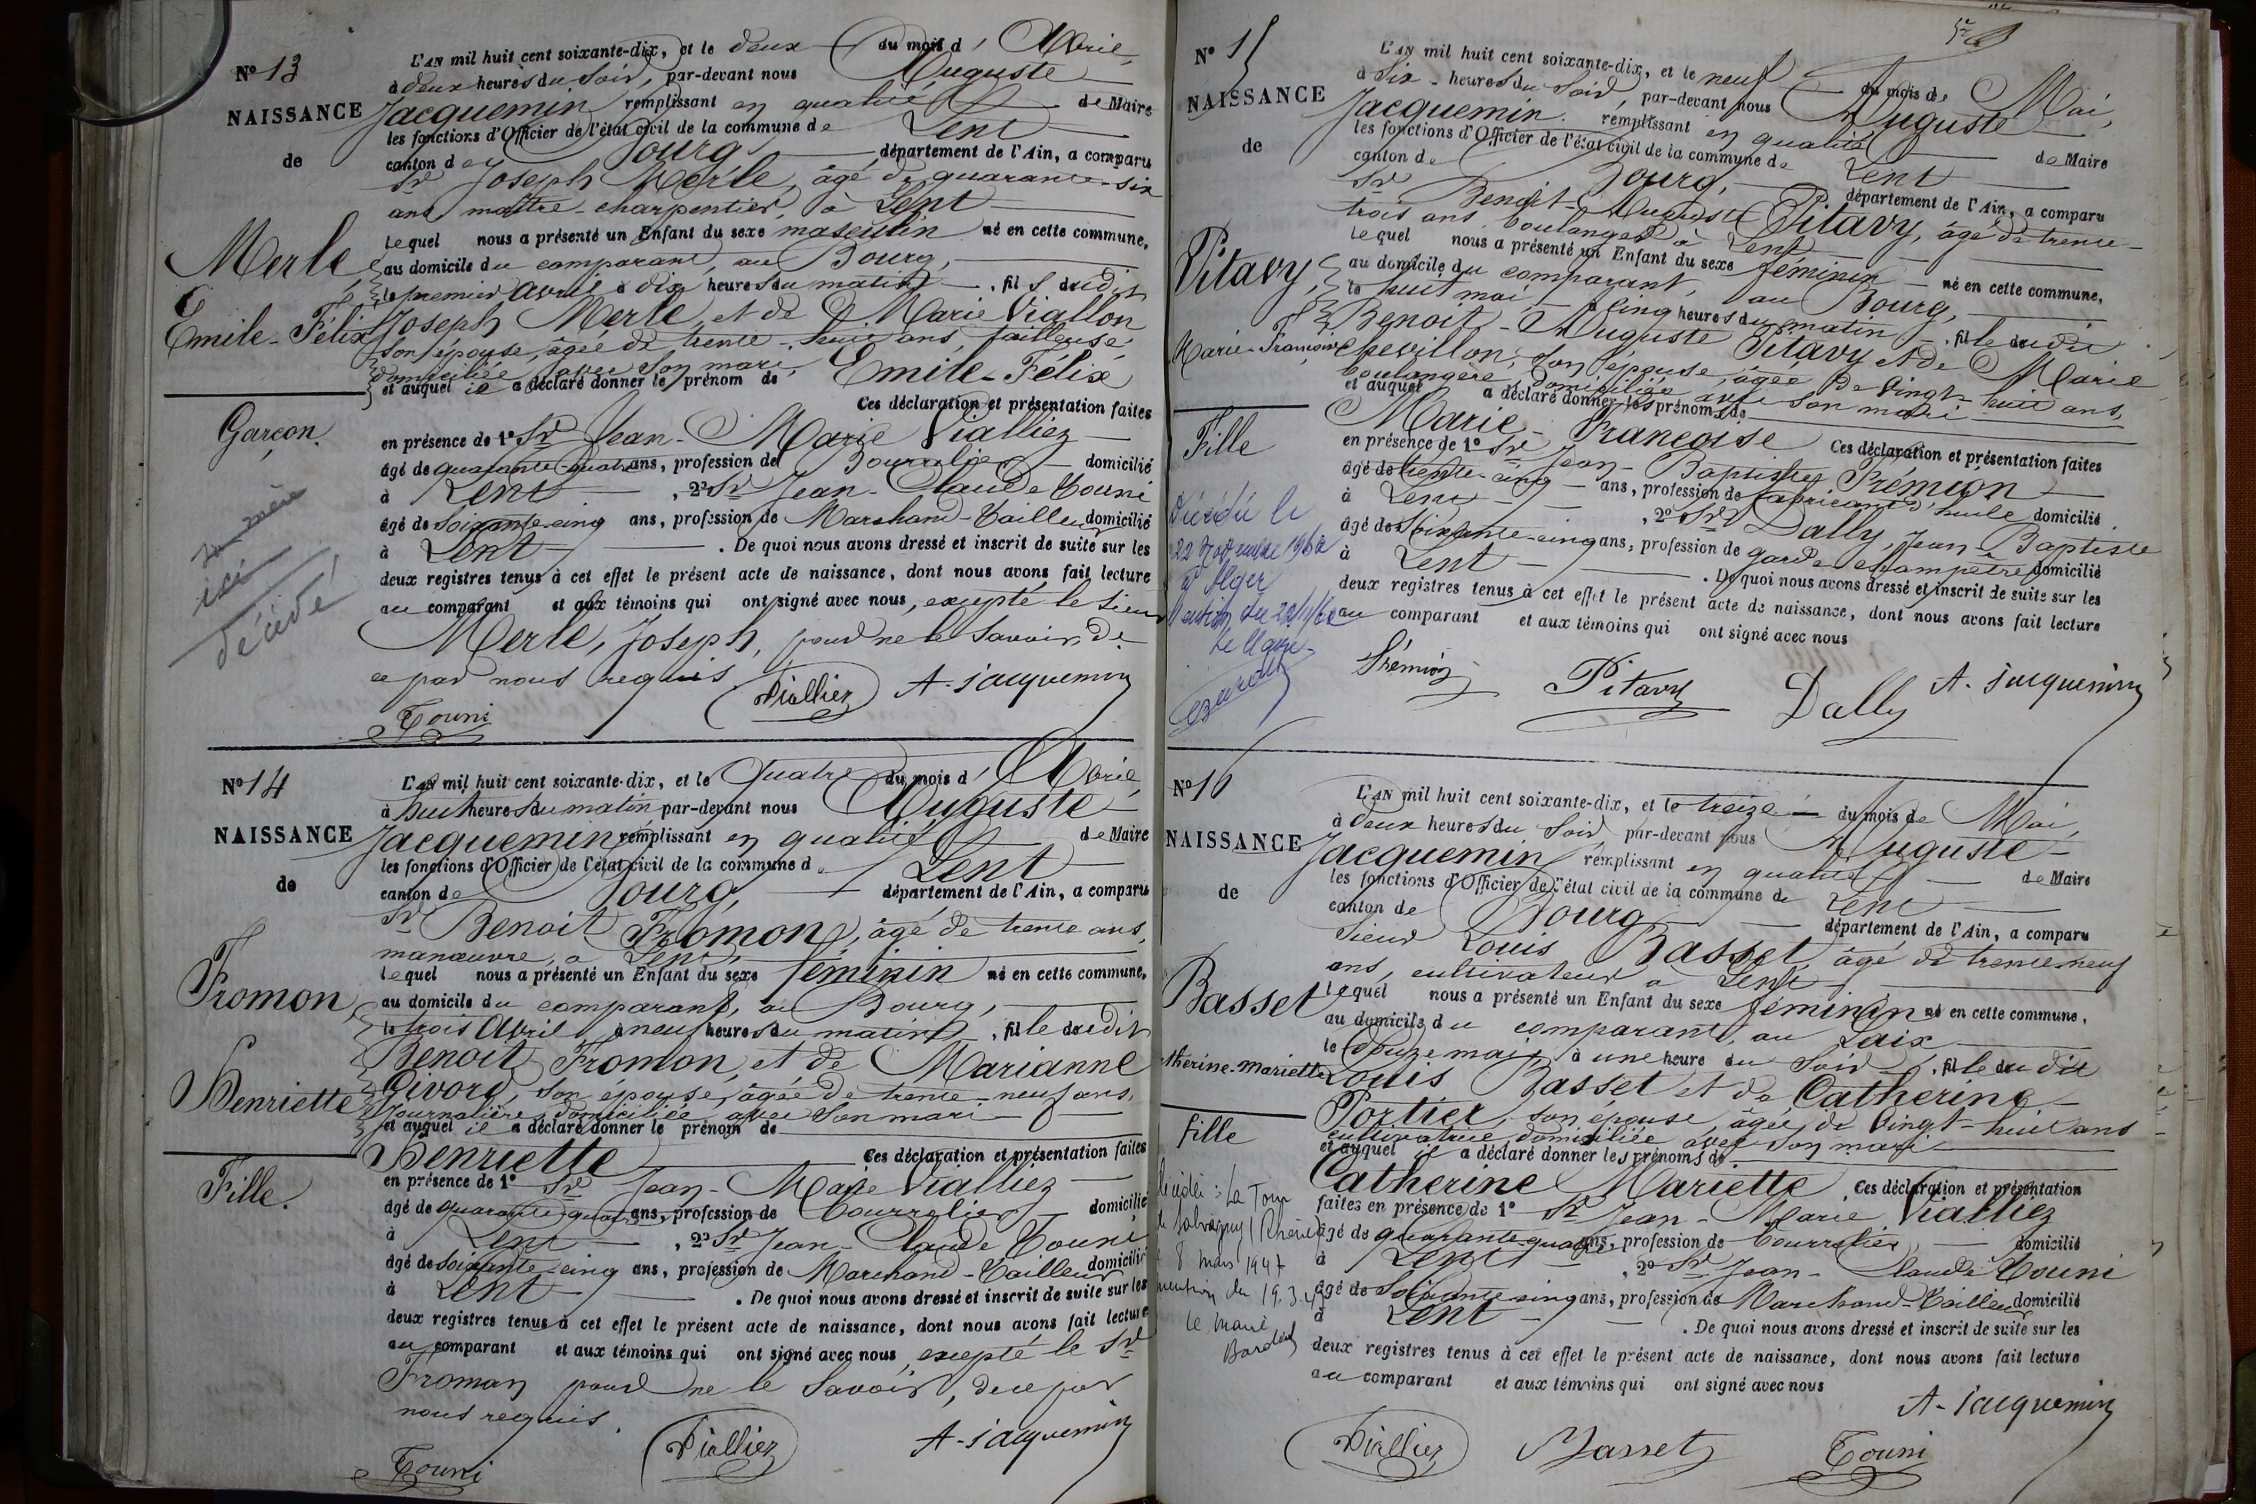 N° 13
NAISSANCE
de
Merle,
Emile-Félix
Garçon.
décédé
L'AN mil huit cent soixante-dix, et le deux du mois d'Avril,
à deux heures du soir, par-devant nous Auguste
Jacquemin remplissant en qualité de Maire
les fonctions d'Officier de l'état civil de la commune de Lent
canton de Bourg département de l'Ain, a comparu
Sr Joseph Merle, âgé de quarante-six
ans, maître-charpentier, à Lent
lequel nous a présenté un Enfant du sexe masculin né en cette commune,
au domicile du comparant, au Bourg,
le premier avril à dix heures du matin, fils dudit
Joseph Merle, et de Marie Viallon
son épouse, âgée de trente-huit ans, tailleuse
domiciliée avec son mari,
et auquel il a déclaré donner le prénom de Emile-Félix
Ces déclaration et présentation faites
en présence de 1° Sr Jean-Marie Vialliez
âgé de quarante-quatre ans, profession de Bourrelier domicilié
à Lent, 2° Sr Jean-Claude Touni
âgé de soixante-cinq ans, profession de Marchand-Tailleur domicilié
à Lent. De quoi nous avons dressé et inscrit de suite sur les
deux registres tenus à cet effet le présent acte de naissance, dont nous avons fait lecture
au comparant et aux témoins qui ont signé avec nous, excepté le sieur
Merle, Joseph, pour ne le savoir, de
ce par nous requis.
Vialliez A. Jacquemin
Touni
N° 14
NAISSANCE
de
Fromon,
Henriette
Fille.
L'AN mil huit cent soixante-dix, et le Quatre du mois d'Avril,
à huit heures du matin par-devant nous Auguste
Jacquemin remplissant en qualité de Maire
les fonctions d'Officier de l'état civil de la commune de Lent
canton de Bourg, département de l'Ain, a comparu
Sr Benoit Fromon, âgé de trente ans,
manœuvre, à Lent,
lequel nous a présenté un Enfant du sexe féminin né en cette commune,
au domicile du comparant, au Bourg,
le trois Avril, à neuf heures du matin, fille dudit
Benoit Fromon, et de Marianne
Givord, son épouse, âgée de trente-neuf ans,
journalière, domiciliée avec son mari
et auquel il a déclaré donner le prénom de
Henriette Ces déclaration et présentation faites
en présence de 1° Sr Jean-Marie Vialliez
âgé de quarante-quatre ans, profession de bourrelier domicilié
à Lent, 2° Sr Jean-Claude Touni
âgé de soixante-cinq ans, profession de Marchand-Tailleur domicilié
à Lent. De quoi nous avons dressé et inscrit de suite sur les
deux registres tenus à cet effet le présent acte de naissance, dont nous avons fait lecture
au comparant et aux témoins qui ont signé avec nous, excepté le Sr
Fromon pour ne le savoir, de ce par
nous requis.
Vialliez A. Jacquemin
Touni
N° 15
NAISSANCE
de
Pitavy,
Marie-Françoise
Fille
Décédée le
22 Novembre 1960
à Alger
Le Maire
L'AN mil huit cent soixante-dix, et le neuf du mois de Mai,
à six heures du soir, par-devant nous Auguste
Jacquemin remplissant en qualité de Maire
les fonctions d'Officier de l'état civil de la commune de Lent
canton de Bourg, département de l'Ain, a comparu
Sr Benoit-Auguste Pitavy, âgé de trente-
trois ans boulanger à Lent
lequel nous a présenté un Enfant du sexe féminin né en cette commune,
au domicile du comparant, au Bourg,
le huit mai, à cinq heures du matin, fille dudit
Benoit-Auguste Pitavy et de Marie
Chevillon, son épouse, âgée de vingt-huit ans,
boulangère, domiciliée avec son mari
et auquel a déclaré donner les prénoms de
Marie-Françoise Ces déclaration et présentation faites
en présence de 1° Sr Jean-Baptiste Frémion
âgé de trente-cinq ans, profession de fabricant d'huile domicilié
à Lent, 2° Sr Dally, Jean-Baptiste
âgé de soixante-cinq ans, profession de garde champêtre domicilié
à Lent. De quoi nous avons dressé et inscrit de suite sur les
deux registres tenus à cet effet le présent acte de naissance, dont nous avons fait lecture
au comparant et aux témoins qui ont signé avec nous
Frémion Pitavy Dally A. Jacquemin
N° 16
NAISSANCE
de
Basset
therine-Mariette
Fille
La Tour
de Salvagny (Rhône)
8 mars 1947
mention du 19.3.47
le Maire
L'AN mil huit cent soixante-dix, et le treize du mois de Mai,
à deux heures du soir, par-devant nous Auguste
Jacquemin remplissant en qualité de Maire
les fonctions d'Officier de l'état civil de la commune de Lent
canton de Bourg département de l'Ain, a comparu
Sieur Louis Basset, âgé de trente-neuf
ans, cultivateur à Lent,
lequel nous a présenté un Enfant du sexe féminin né en cette commune,
au domicile du comparant, au Laix
le douze mai, à une heure du soir, fille dudit
Louis Basset et de Catherine
Portier, son épouse, âgée de vingt-huit ans
cultivatrice, domiciliée avec son mari
et auquel il a déclaré donner les prénoms de
Catherine Mariette. Ces déclaration et présentation
faites en présence de 1° Sr Jean-Marie Vialliez
âgé de quarante-quatre ans, profession de bourrelier domicilié
à Lent, 2° Sr Jean-Claude Touni
âgé de soixante-cinq ans, profession de Marchand-Tailleur domicilié
à Lent. De quoi nous avons dressé et inscrit de suite sur les
deux registres tenus à cet effet le présent acte de naissance, dont nous avons fait lecture
au comparant et aux témoins qui ont signé avec nous
A. Jacquemin
Vialliez Basset Touni